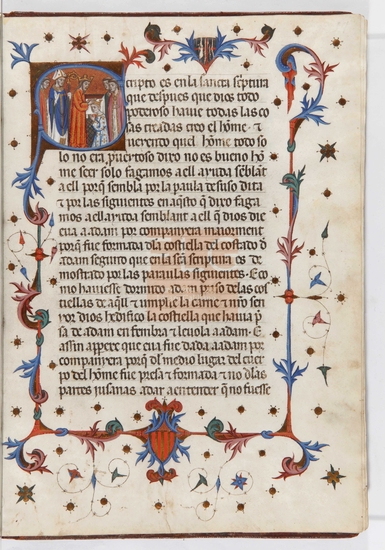 cripto es en la sancta scriptura
que despues que dios todo
poderoso havie todas las co
sas creadas creo el hõme ⁊
veyendo quel hõme todo so
lo no era prouetoso dixo no es bueno hõ
me seer solo fagamos a ell ayuda seblãt
a ell porq̃ sembla por la paula desuso dita
⁊ por las siguientes en aq̃sto q̃ dixo faga
mos a ell ayuda semblant a ell q̃ dios die
eua a adam por companyera maiorment
porq̃ fue formada dla costiella del costado d̃
adam seguiro que en la scã scriptura es de
mostrado por las paraulas siguientes. E co
mo hauiesse dormido adam p̃so de las cos
tiellas de aq̃ll ⁊ umplie la carne ⁊ nr̃o sen
yor dios hedifico la costiella que hauia p̃
sa de adam en fembra ⁊ leuola a adam. E
assin appere que eua fue dada a adam por
companyera porq̃ dl medio lugar del cuer
po del hõme fue presa ⁊ formada ⁊ no dlas
partes jusanas. a dar a entender q̃ no fuesse